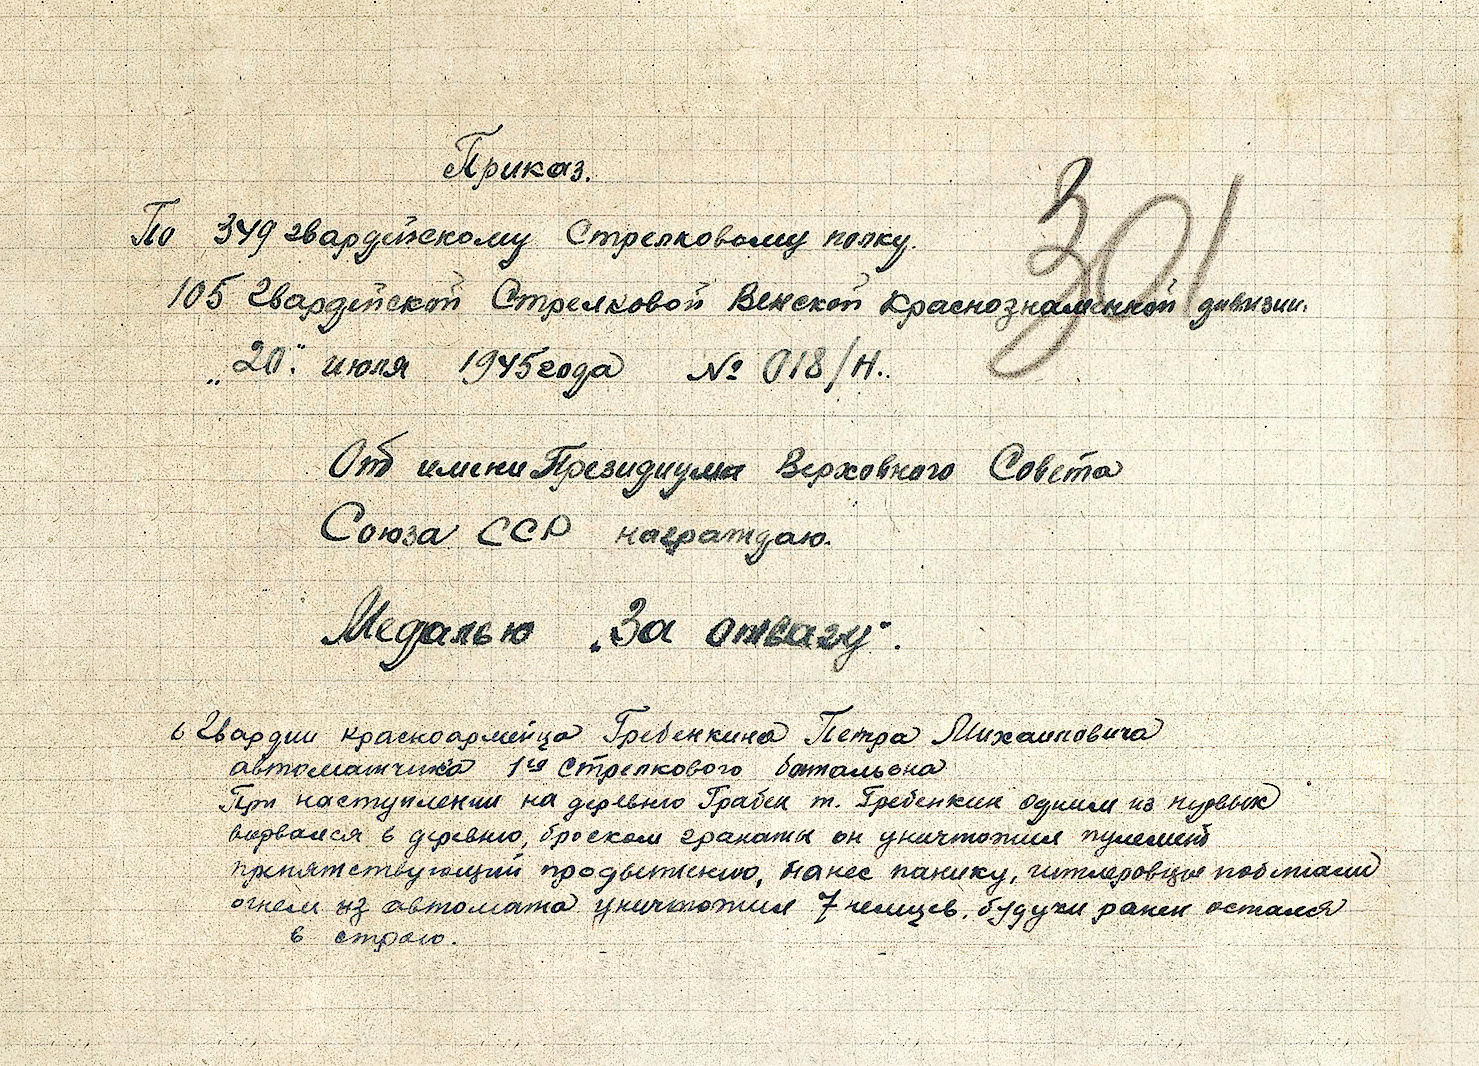 Приказ.
301
По 349 гвардейскому Стрелковому полку.
105 Гвардейской Стрелковой Венской Краснознаменной дивизии.
„20" июля 1945 года № 018/Н.
От имени Президиума Верховного Совета
Союза ССР награждаю.
Медалью „За отвагу".
6 Гвардии красноармейца Гребенкина Петра Михаиловича
автоматчика 1го Стрелкового батальона
При наступлении на деревню Грабен т. Гребенкин одним из первых
ворвался в деревню, броском гранаты он уничтожил пулемет
препятствующий продвижению, нанес панику, гитлеровцы побежали
огнем из автомата уничтожил 7 немцев. будучи ранен остался
в строю.